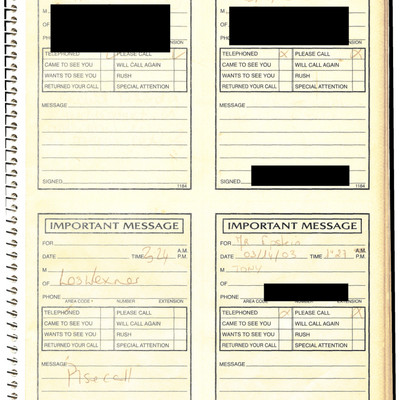 M
OF
PHONE
EXTENSION
TELEPHONED PLEASE CALL
CAME TO SEE YOU WILL CALL AGAIN
WANTS TO SEE YOU RUSH
RETURNED YOUR CALL SPECIAL ATTENTION
MESSAGE
SIGNED 1184
M
OF
PHONE
TELEPHONED X PLEASE CALL X
CAME TO SEE YOU WILL CALL AGAIN
WANTS TO SEE YOU RUSH
RETURNED YOUR CALL SPECIAL ATTENTION
MESSAGE
SIGNED 1184
IMPORTANT MESSAGE
FOR
DATE TIME 3:24 A.M. P.M.
M
OF Les Wexner
PHONE
AREA CODE NUMBER EXTENSION
TELEPHONED PLEASE CALL
CAME TO SEE YOU WILL CALL AGAIN
WANTS TO SEE YOU RUSH
RETURNED YOUR CALL SPECIAL ATTENTION
MESSAGE
Plse call
IMPORTANT MESSAGE
FOR Mr Epstein
DATE TIME A.M. P.M.
M Tony
OF
PHONE
AREA CODE NUMBER EXTENSION
TELEPHONED X PLEASE CALL X
CAME TO SEE YOU WILL CALL AGAIN
WANTS TO SEE YOU RUSH
RETURNED YOUR CALL SPECIAL ATTENTION
MESSAGE